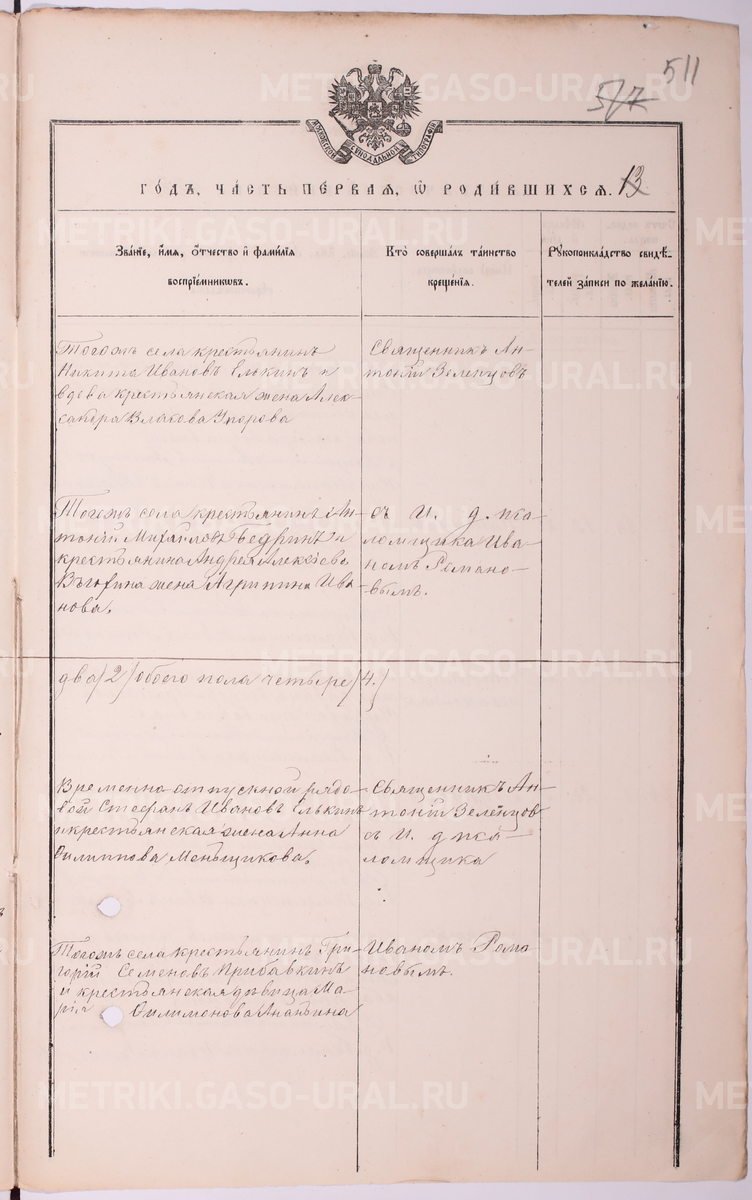 511
517
МОСКОВСКОЙ СѴНОДАЛЬНОЙ ТИПОГРАФІИ
ГО́ДЪ, ЧА́СТЬ ПЕ́РВАЯ, Ѡ РОДИ́ВШИХСЯ. 13
Зва́ніе, и́мя, о́тчество и фами́лія
воспріе́мниковъ.
Кто̀ соверша́лъ та́инство
креще́нія.
Рꙋкоприкла́дство свидѣ́-
телей за́писи по жела́нію.
Тогожъ села крестьянинъ
Никита Ивановъ Елькинъ и
вдова крестьянская жена Алек-
сандра Власова Упорова
Священникъ Ан-
тоній Зеленцовъ
Тогожъ села крестьянинъ Ан-
тоній Михайловъ Бедринъ и
крестьянина Андрея Алексѣева
жена Агрипина Ива-
нова.
съ И. д. пса-
ломщика Ива-
номъ Романо-
вымъ.
два (2) обоего пола четыре (4.)
Временно отпускной рядо-
вой Стефанъ Ивановъ Елькинъ
и крестьянская жена Анна
Филиппова Меньщикова.
Священникъ Ан-
тоній Зеленцов
съ И. д пса-
ломщика
Тогожъ села крестьянинъ Гри-
горій Семеновъ Прибавкинъ
и крестьянская дѣвица Ма-
рія Филимонова Ананьина
Иваномъ Рома
новымъ.
METRIKI.GASO-URAL.RU